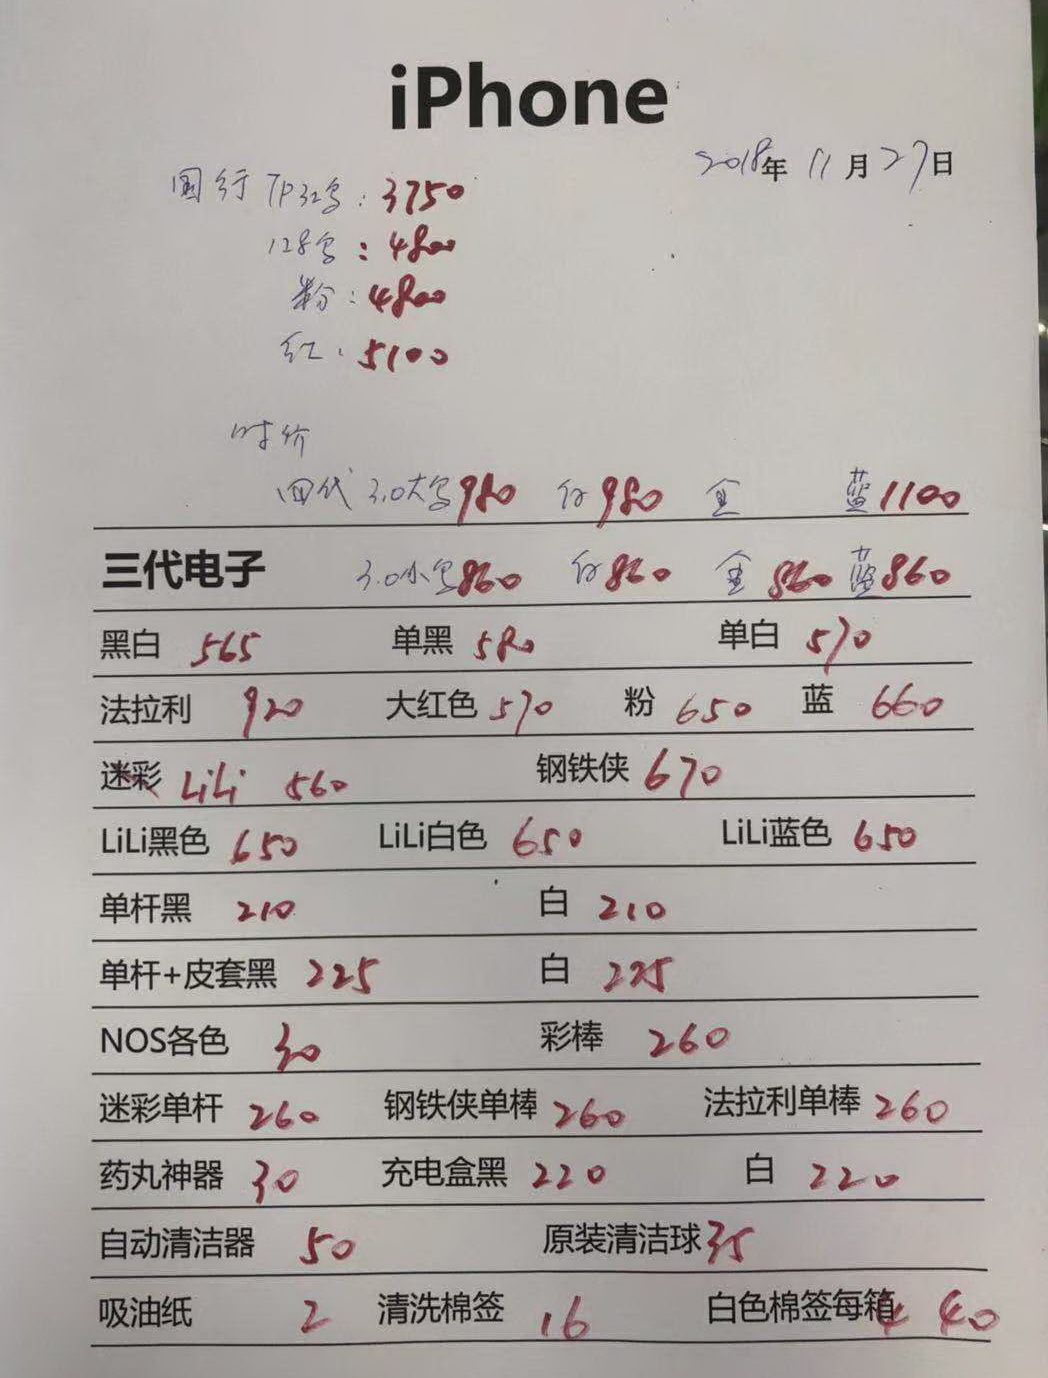 iPhone
2018年 11月27日
国行 7P32g: 3750
128g: 4800
粉: 4800
红: 5100
时价
四代 3.0大 980 980 金 蓝1100
三代电子 3.0小 860 860 金 860 蓝860
黑白 565 单黑 580 单白 570
法拉利 920 大红色 570 粉 650 蓝 660
迷彩 LiLi 560 钢铁侠 670
LiLi黑色 650 LiLi白色 650 LiLi蓝色 650
单杆黑 210 白 210
单杆+皮套黑 225 白 225
NOS各色 30 彩棒 260
迷彩单杆 260 钢铁侠单棒 260 法拉利单棒 260
药丸神器 30 充电盒黑 220 白 220
自动清洁器 50 原装清洁球 35
吸油纸 2 清洗棉签 16 白色棉签每箱 40